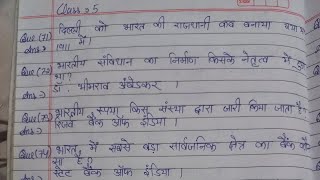 Class → 5
Que (71) दिल्ली को भारत की राजधानी कब बनाया गया
Ans → 1911 में।
Que (72) भारतीय संविधान का निर्माण किसके नेतृत्व में हुआ
था?
Ans → डॉ. भीमराव अंबेडकर ।
Que (73) भारतीय रुपया किस संस्था द्वारा जारी किया जाता है?
Ans → रिजर्व बैंक ऑफ इंडिया ।
Que (74) भारत में सबसे बड़ा सार्वजनिक क्षेत्र का बैंक कौन
सा है?
Ans → स्टेट बैंक ऑफ इंडिया ।